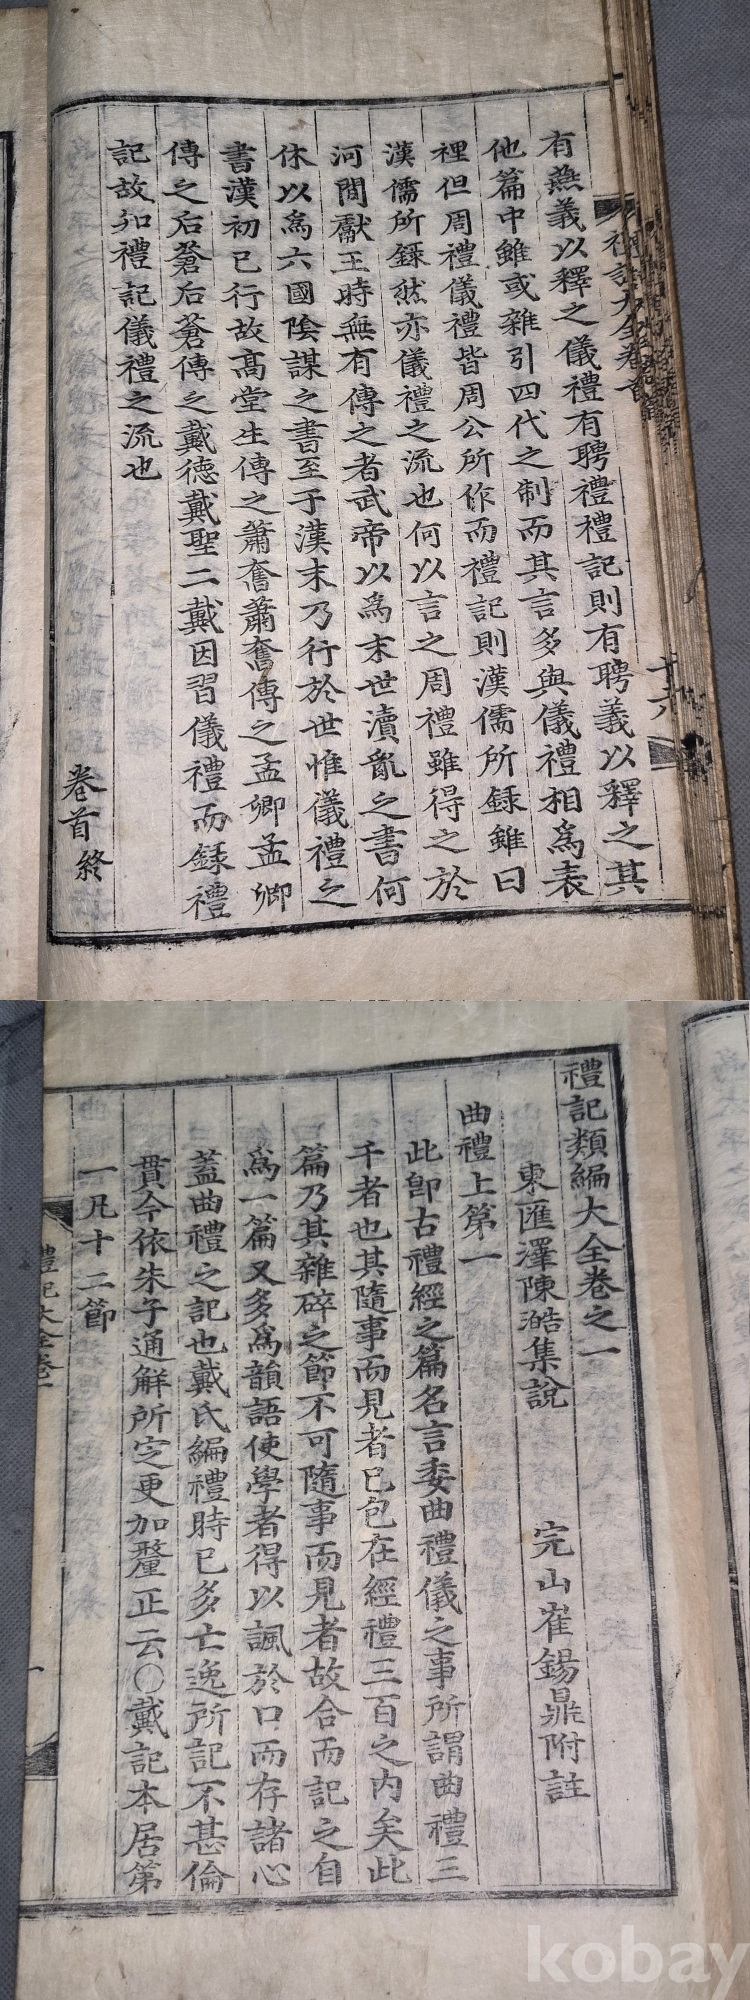 禮記大全卷首
十六
有燕義以釋之儀禮有聘禮禮記則有聘義以釋之其
他篇中雖或雜引四代之制而其言多與儀禮相爲表
裡但周禮儀禮皆周公所作而禮記則漢儒所録雖曰
漢儒所録然亦儀禮之流也何以言之周禮雖得之於
河間獻王時無有傳之者武帝以爲末世瀆亂之書何
休以爲六國陰謀之書至于漢末乃行於世惟儀禮之
書漢初已行故高堂生傳之蕭奮蕭奮傳之孟卿孟卿
傳之后蒼后蒼傳之戴德戴聖二戴因習儀禮而録禮
記故知禮記儀禮之流也
卷首終
禮記類編大全卷之一
東匯澤陳澔集說 完山崔錫鼎附註
曲禮上第一
此卽古禮經之篇名言委曲禮儀之事所謂曲禮三
千者也其隨事而見者已包在經禮三百之內矣此
篇乃其雜碎之節不可隨事而見者故合而記之自
爲一篇又多爲韻語使學者得以諷於口而存諸心
蓋曲禮之記也戴氏編禮時已多亡逸所記不甚倫
貫今依朱子通解所定更加釐正云〇戴記本居第
一凡十二節
禮記大全卷一
一
kobay